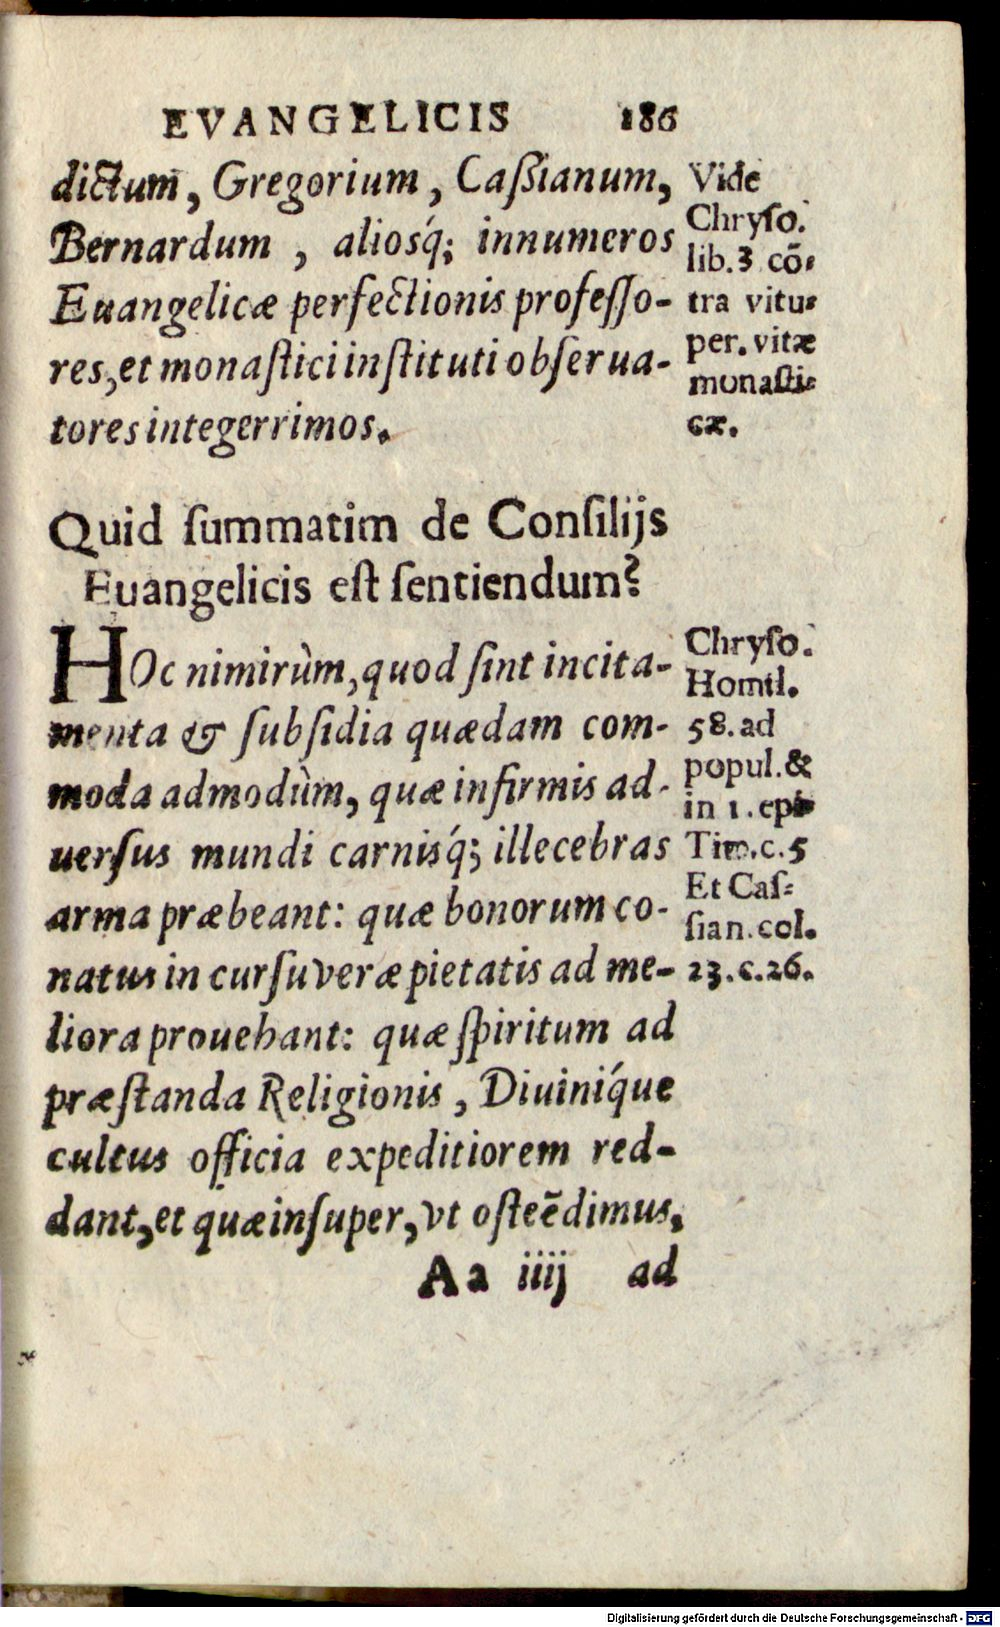 EVANGELICIS 186
dictum, Gregorium, Caſsianum,
Bernardum, aliosq́; innumeros
Euangelicæ perfectionis profeſſo-
res, et monaſtici inſtituti obſerua-
tores integerrimos.
Vide
Chryſo.
lib. 3 cō-
tra vitu-
per. vitæ
monaſti-
cæ.
Quid ſummatim de Conſilijs
Euangelicis eſt ſentiendum?
HOc nimirùm, quod ſint incita-
menta & ſubſidia quædam com-
moda admodùm, quæ infirmis ad-
uerſus mundi carnisq́; illecebras
arma præbeant: quæ bonorum co-
natus in curſu veræ pietatis ad me-
liora prouehant: quæ ſpiritum ad
præſtanda Religionis, Diuiniq́ue
cultus officia expeditiorem red-
dant, et quæ inſuper, vt oſteēdimus,
Chryſo.
Homil.
58. ad
popul. &
in 1. epi-
Tim. c. 5
Et Caſ-
ſian. col.
23. c. 26.
Aa iiij ad
Digitalisierung gefördert durch die Deutsche Forschungsgemeinschaft - DFG